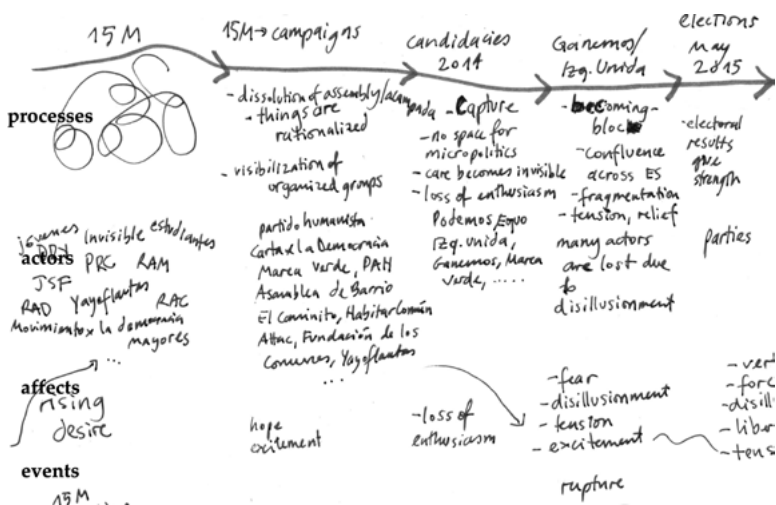 15M
15M → campaigns
candidacies
2014
Ganemos/
Izq. Unida
elections
May
2015
processes
- dissolution of assembly/acampada
- things are
rationalized
- visibilization of
organized groups
- Capture
- no space for
micropolitics
- care becomes invisible
- loss of enthusiasm
- becoming-
block
- confluence
across ES
- fragmentation
- tension, relief
- electoral
results
give
strength
actors
jóvenes invisible estudiantes
DRY PRC RAM
JSF
RAD Yayoflautas RAC
Movimiento x la democracia
mayores
...
partido humanista
Carta x la Democracia
Marea verde, PAH
Asamblea de Barrio
El Caminito, Habitar Común
Attac, Fundación de los
Comunes, Yayoflautas
...
Podemos, Equo
Izq. Unida,
Ganemos, Marea
verde, .....
many actors
are lost due
to
disillusionment
parties
affects
rising
desire
hope
excitement
- loss of
enthusiasm
- fear
- disillusionment
- tension
- excitement
- vert
- forc
- disill
- liber
- tens
events
15M
rupture